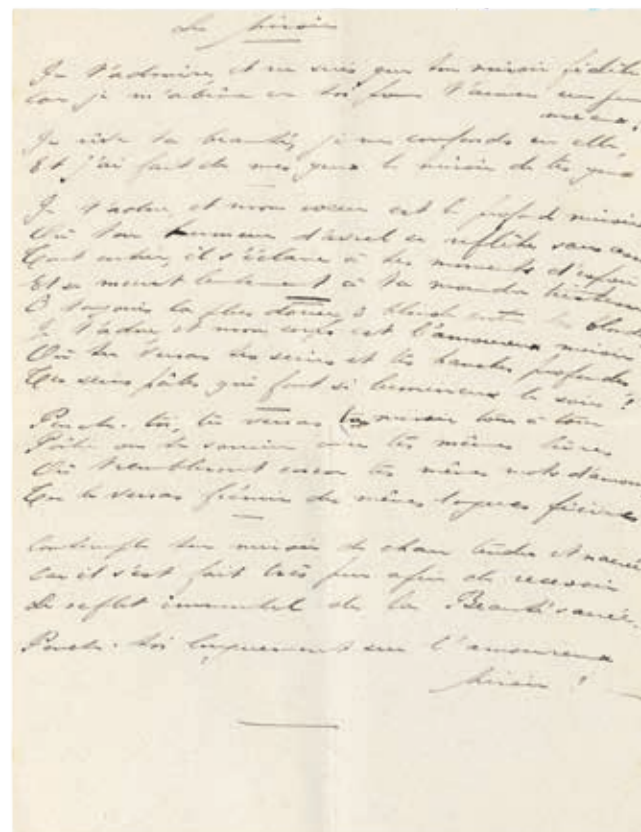 Le Miroir
Je t'admire, et ne suis que ton miroir fidèle
Car je m'abîme en toi pour t'aimer un peu
mieux;
Je rêve ta beauté, je me confonds en elle,
Et j'ai fait de mes yeux le miroir de tes yeux
Je t'adore, et mon cœur est le profond miroir
Où ton humeur d'avril se reflète sans cess
Tout entier, il s'éclaire à tes moments d'espoir
Et se meurt lentement à ta moindre tristesse
Ô toujours la plus douce, ô blonde entre les blondes
Je t'adore, et mon corps est l'amoureux miroir
Où tu verras tes seins et tes hanches profondes
Tes seins pâles qui font si lumineux le soir!
Penche-toi, tu verras ton miroir tour à tour
Pâlir ou te sourire avec tes mêmes lèvres
Où trembleront encor tes mêmes mots d'amour
Tu le verras frémir des mêmes longues fièvres
Contemple ton miroir de chair tendre et nacrée
Car il s'est fait très pur afin de recevoir
Le reflet immortel de la Beauté sacrée.
Penche-toi longuement sur l'amoureux
Miroir!